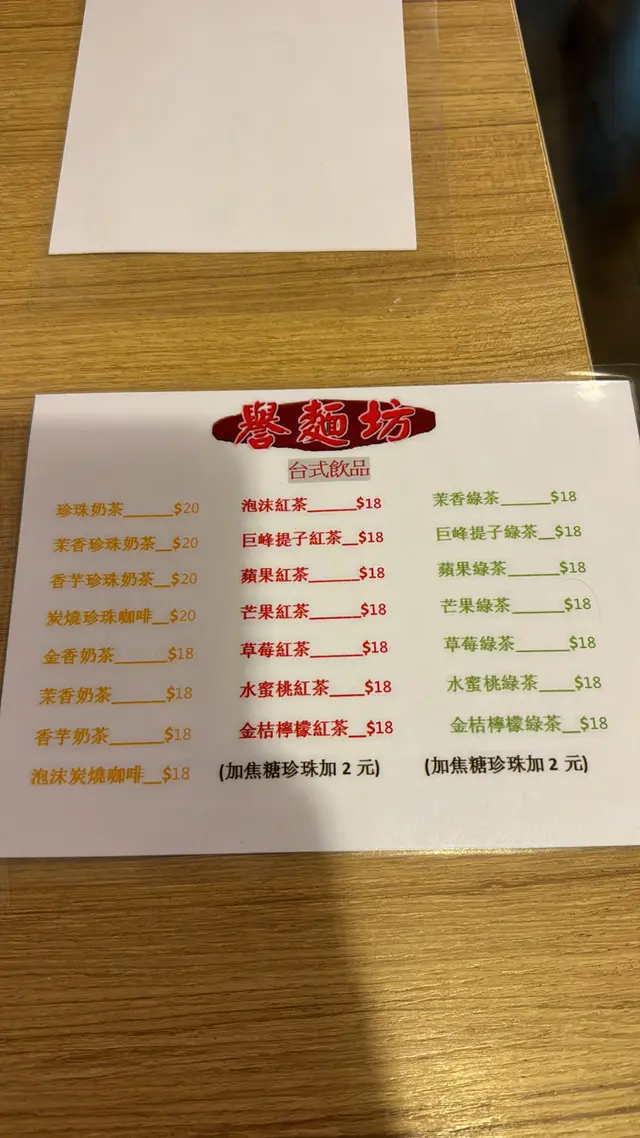 譽麵坊
台式飲品
珍珠奶茶______$20
茉香珍珠奶茶__$20
香芋珍珠奶茶__$20
炭燒珍珠咖啡__$20
金香奶茶______$18
茉香奶茶______$18
香芋奶茶______$18
泡沫炭燒咖啡__$18
泡沫紅茶______$18
巨峰提子紅茶__$18
蘋果紅茶______$18
芒果紅茶______$18
草莓紅茶______$18
水蜜桃紅茶____$18
金桔檸檬紅茶__$18
(加焦糖珍珠加 2 元)
茉香綠茶______$18
巨峰提子綠茶__$18
蘋果綠茶______$18
芒果綠茶______$18
草莓綠茶______$18
水蜜桃綠茶____$18
金桔檸檬綠茶__$18
(加焦糖珍珠加 2 元)